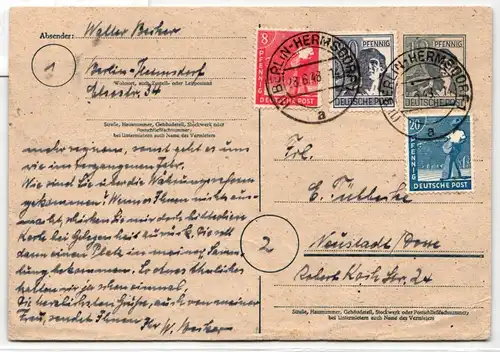 Absender: Walter Becker
1
Berlin-Hermsdorf
Wohnort, auch Zustell- oder Leitpostamt
34
Straße, Hausnummer, Gebäudeteil, Stockwerk oder Postschließfachnummer;
bei Untermietern auch Name des Vermieters
mehr regnen, sonst geht es uns
wie im vergangenen Jahr.
Wie sind Sie über die Währungsreform
gekommen? Wenn es Ihnen nichts aus-
macht, schicken Sie mir doch bitte diese
Karte bei Gelegenheit zurück. Sie soll
dann einen Platz in meiner Samm-
lung bekommen. So etwas ähnliches
hatten wir ja schon einmal.
Die herzlichsten Grüße, auch von meiner
Frau, sendet Ihnen Ihr W. Becker
8 PFENNIG DEUTSCHE POST
PFENNIG DEUTSCHE POST
PFENNIG DEUTSCHE POST
BERLIN-HERMSDORF
23.6.48
a
BERLIN-HERMSDORF
a
20 PFENNIG DEUTSCHE POST
Frl.
E.
2
Neustadt/Dosse
Robert Koch Str. 24
Straße, Hausnummer, Gebäudeteil, Stockwerk oder Postschließfachnummer;
bei Untermietern auch Name des Vermieters